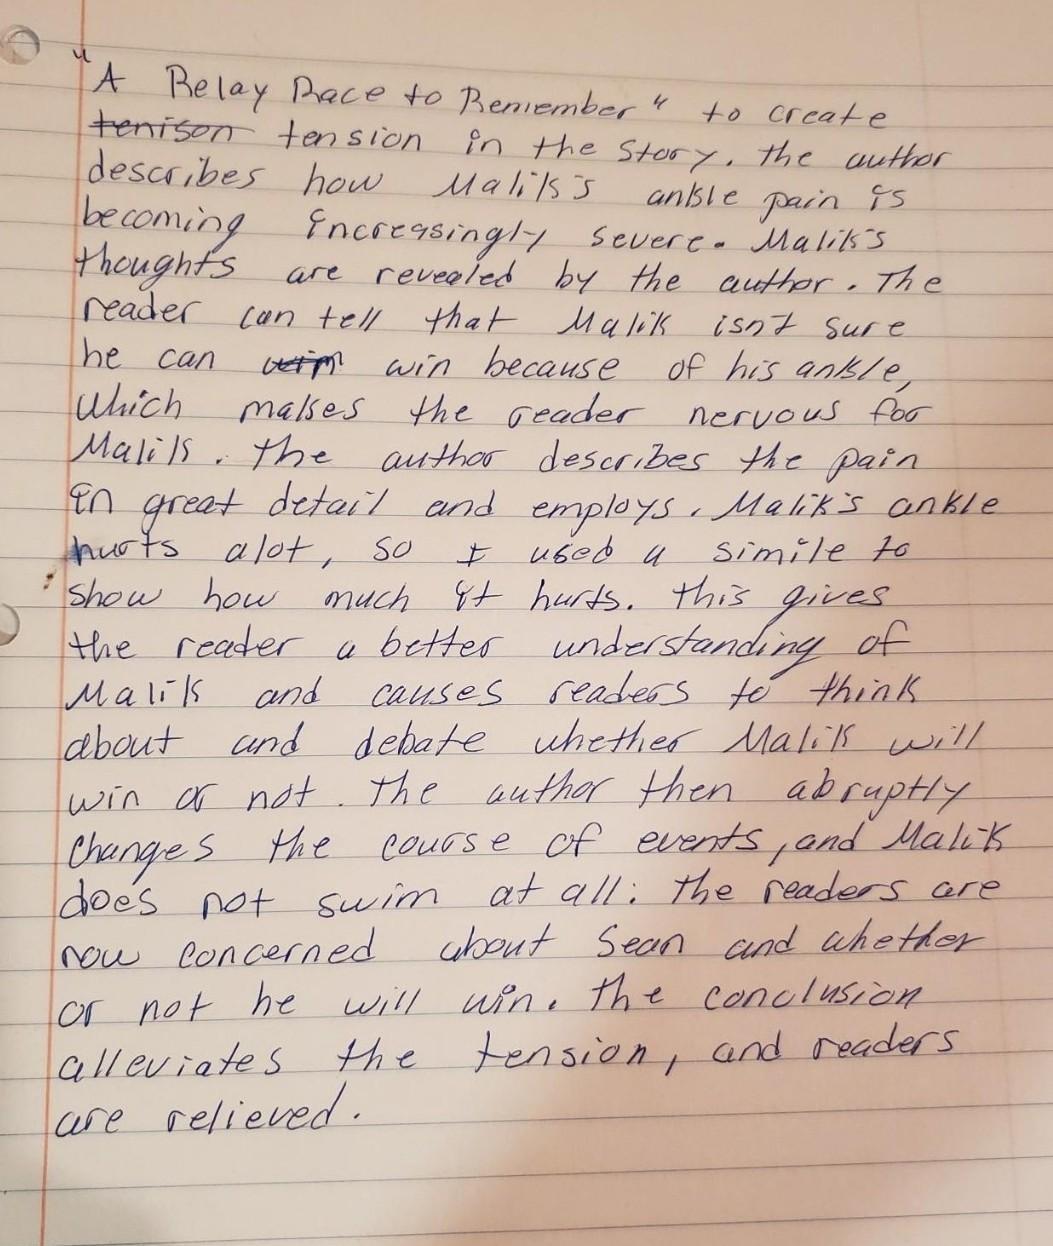 "A Relay Race to Remember" to create
tenison tension in the story. the author
describes how Malik's ankle pain is
becoming increasingly severe. Malik's
thoughts are revealed by the author. The
reader can tell that Malik isn't sure
he can win because of his ankle,
which makes the reader nervous for
Malik. the author describes the pain
in great detail and employs. Malik's ankle
hurts alot, so I used a simile to
show how much it hurts. this gives
the reader a better understanding of
Malik and causes readers to think
about and debate whether Malik will
win or not. the author then abruptly
changes the course of events, and Malik
does not swim at all. the readers are
now concerned about Sean and whether
or not he will win. the conclusion
alleviates the tension, and readers
are relieved.